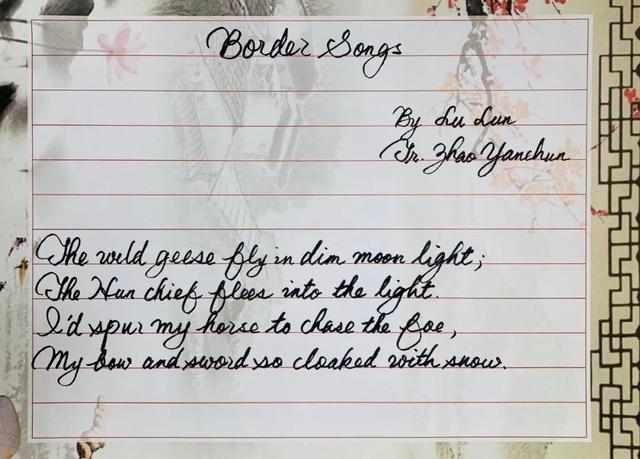 Border Songs
By Lu Lun
Tr. Zhao Yanchun
The wild geese fly in dim moon light;
The Hun chief flees into the light.
I'd spur my horse to chase the foe,
My bow and sword so cloaked with snow.